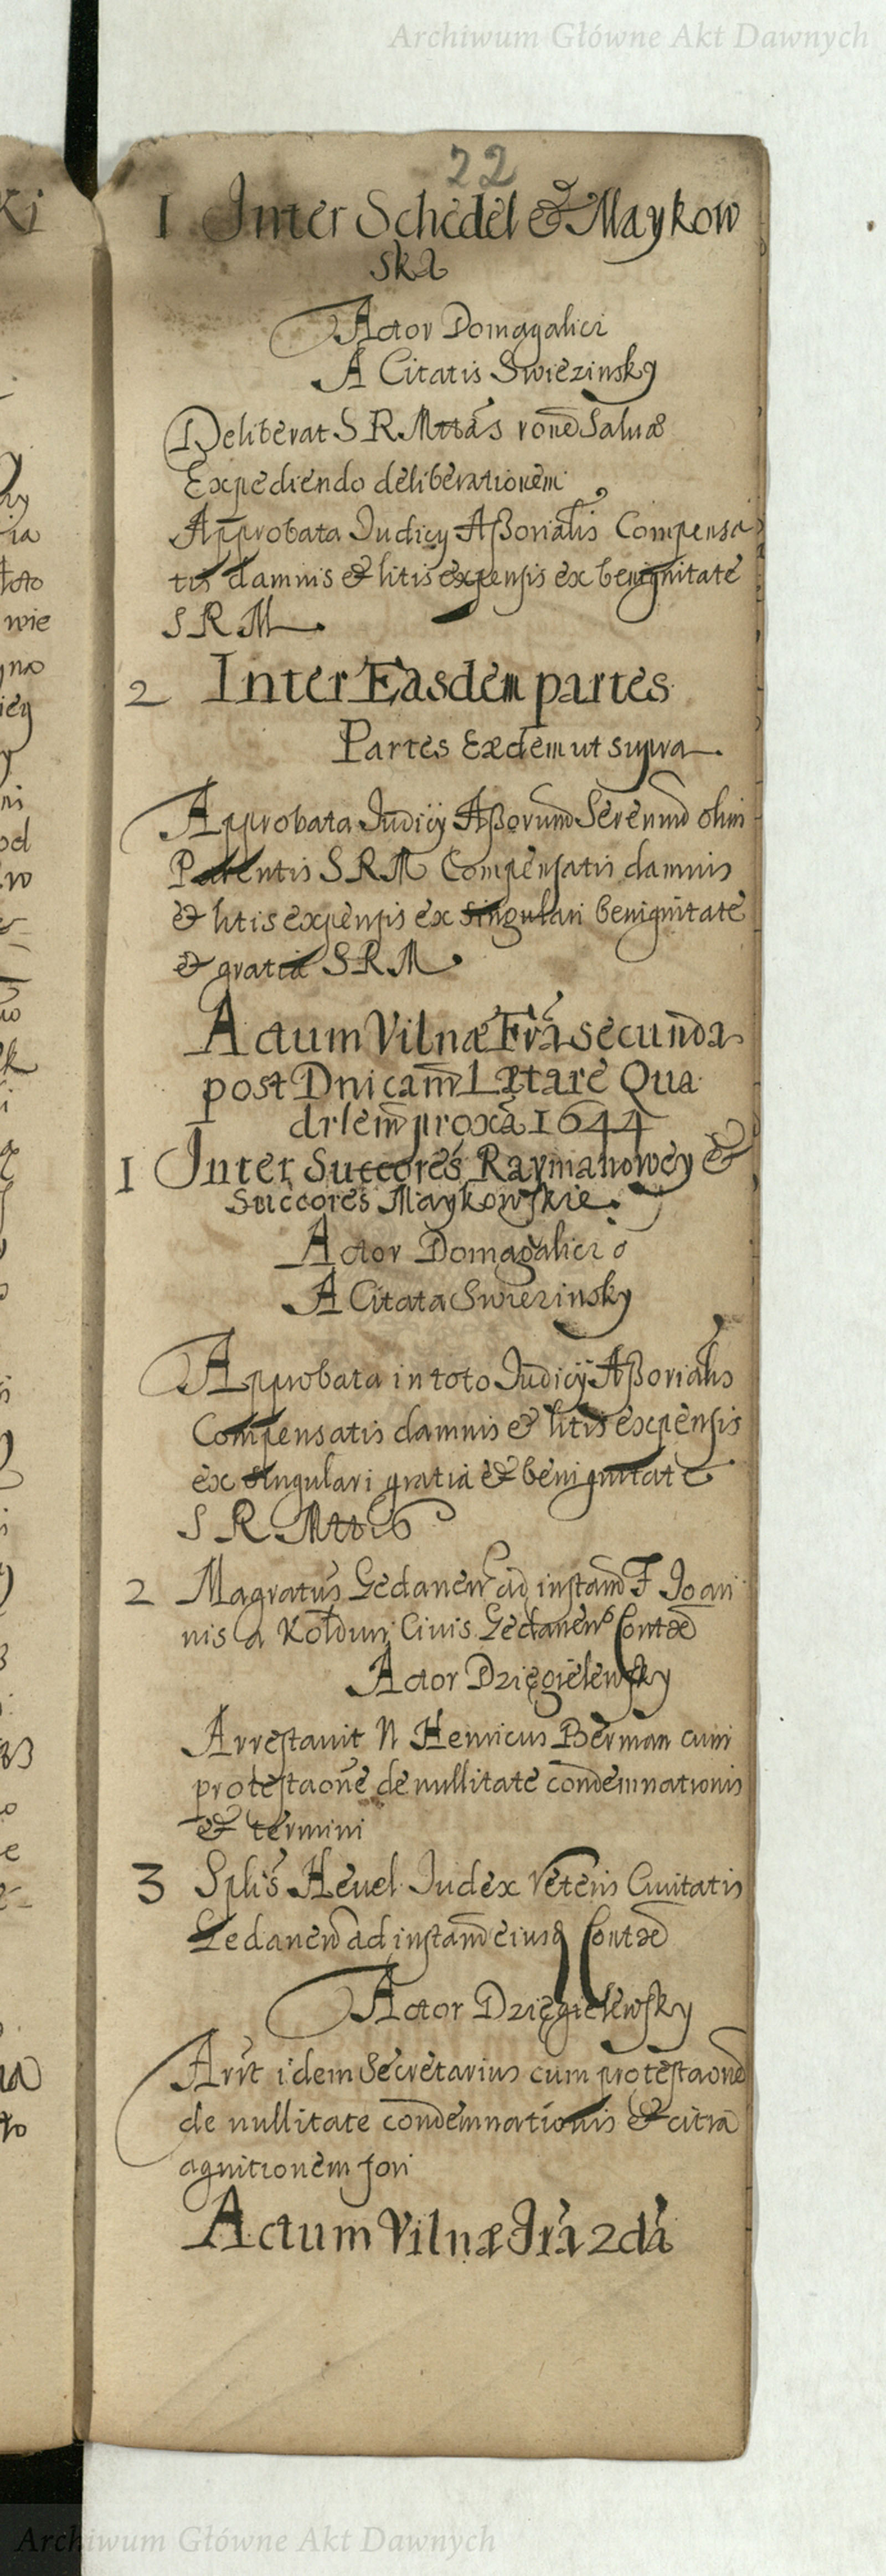 Archiwum Główne Akt Dawnych
22
1 Inter Schedel & Maykow
ska
Actor Domagalicz
A Citatis Swiezinsky
Deliberat S R Mttas Salua
Expediendo deliberationem
Approbata Judicij Aßorialis Compensa
tis damnis & litis expensis ex benignitate
S R M
2 Inter Easdem partes
Partes Eaedem ut supra
Approbata Judicij Aßorum Serenmi olim
Parentis S R M Compensatis damnis
& litis expensis ex singulari benignitate
& gratia S R M
Actum Vilnæ Fra secunda
post Dnicam Lætare Qua
drlem proxa 1644
1 Inter Succores Raymanowey &
Succores Maykowskie
Actor Domagalicz
A Citata Swiezinsky
Approbata in toto Judicij Aßorialis
Compensatis damnis & litis expensis
ex singulari gratia & benignitate
S R Mttis
2 Magratus Gedanen ad instam F Joan
nis a Kołdun Ciuis Gedanens Contæ
Actor Dzięgielewsky
Arrestauit N Henricus Berman cum
protestaone de nullitate condemnationis
& termini
3 Splis Heuel Judex Veteris Ciuitatis
Gedanen ad instam eiusd Contæ
Actor Dzięgielewsky
Arrt idem Secretarius cum protestaone
de nullitate condemnationis & citra
agnitionem fori
Actum Vilnæ Fra 2da
Archiwum Główne Akt Dawnych